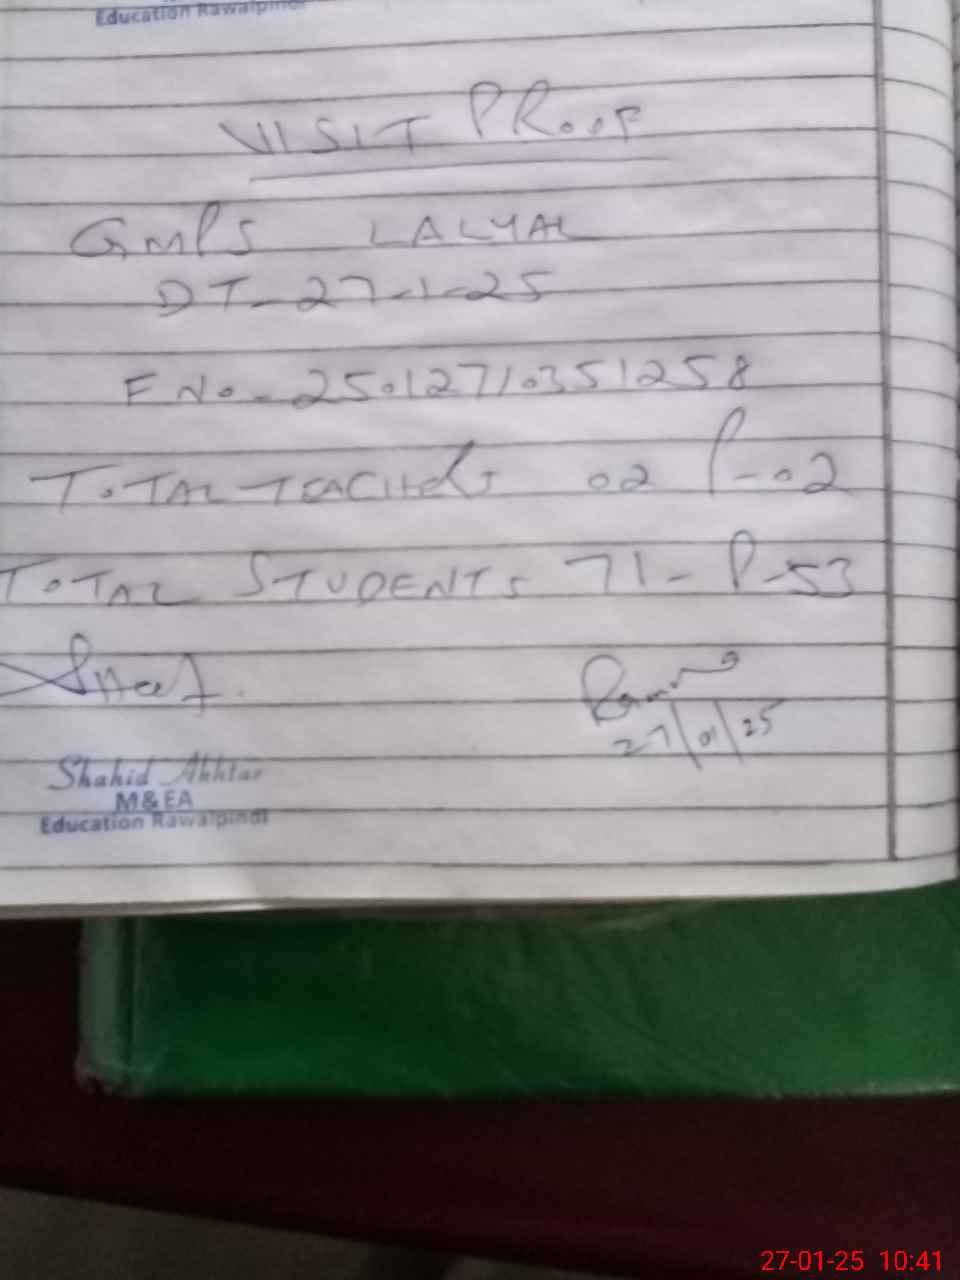 Education Rawalpindi
VISIT PROOF
GMPS LALYAL
DT-27-1-25
F No. 25012710351258
TOTAL TEACHERS 02 P-02
TOTAL STUDENTS 71- P-53
27/01/25
Shahid Akhtar
M&EA
Education Rawalpindi
27-01-25 10:41